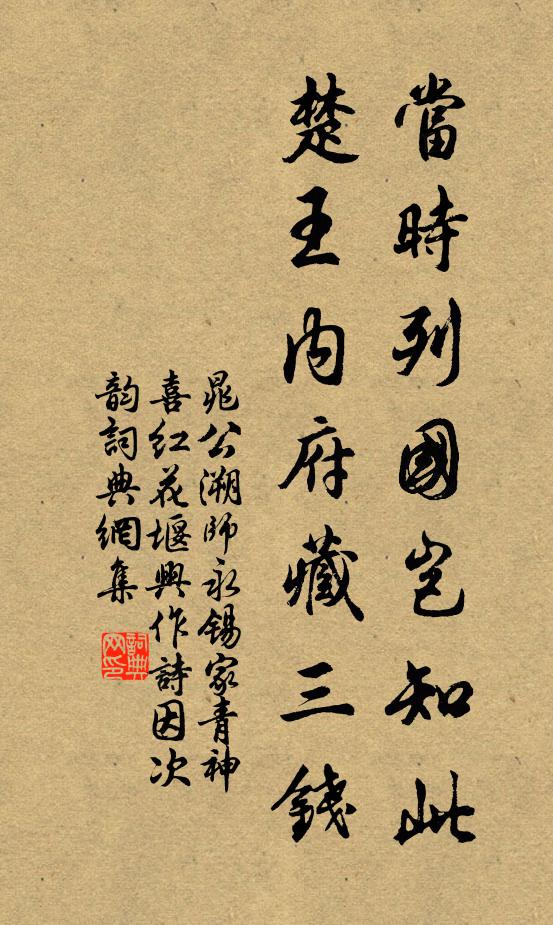 當時列國豈知此
楚王內府藏三錢
晁公溯師永錫家青神
喜紅花堰興作詩因次
韵詞典網集
詞典
网印